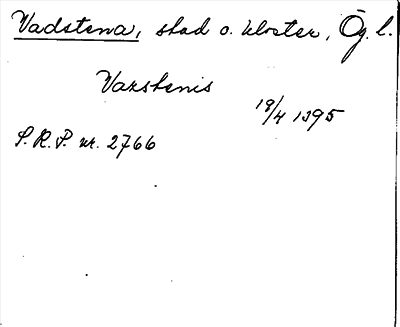 Vadstena, stad o. kloster, Ög. l.
Vazstenis
18/4 1395
S.R.P. nr. 2766